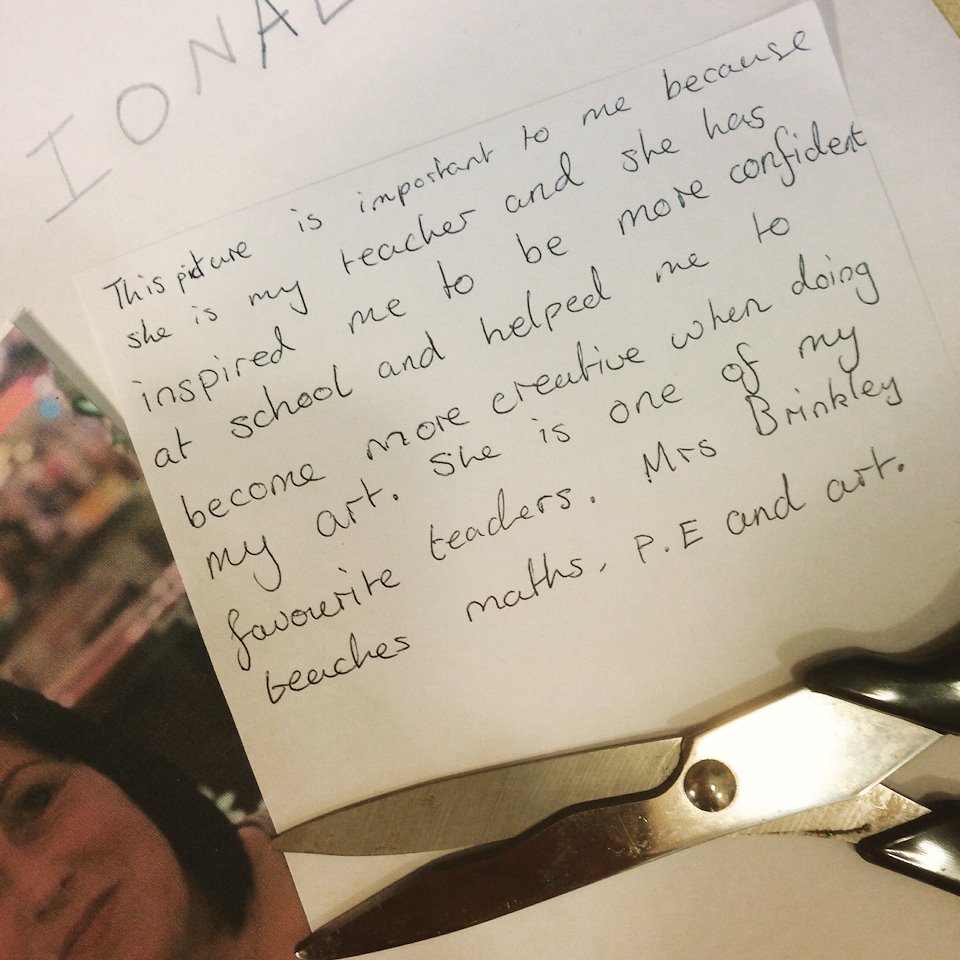 IONAL
This picture is important to me because
she is my teacher and she has
inspired me to be more confident
at school and helped me to
become more creative when doing
my art. She is one of my
favourite teachers. Mrs Brinkley
teaches maths, P.E and art.